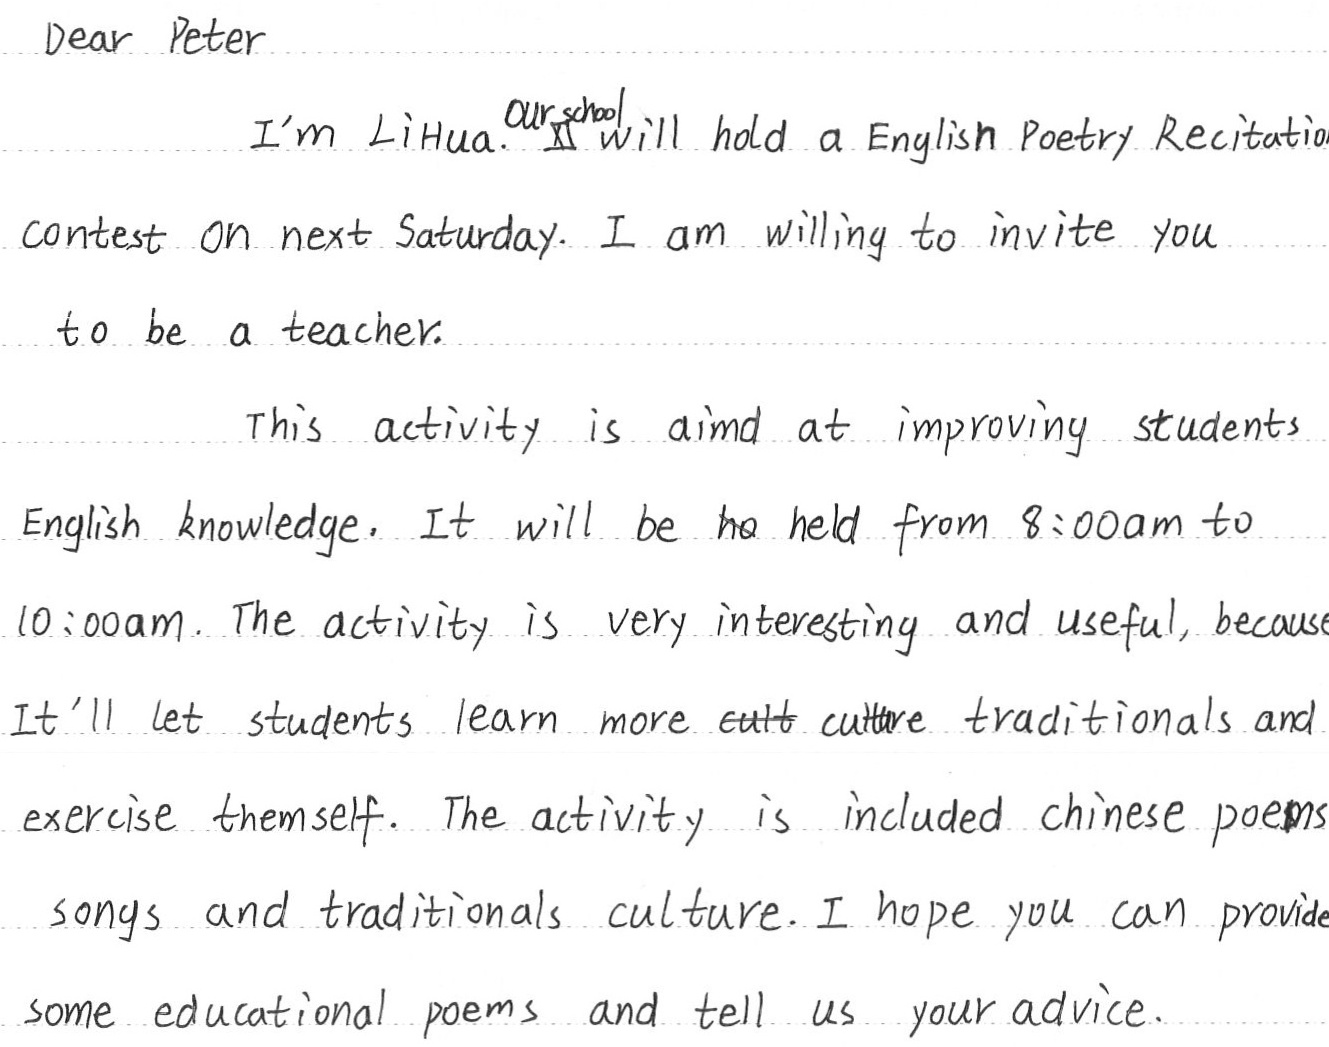 Dear Peter
I'm LiHua. Our school will hold a English Poetry Recitatio
contest on next Saturday. I am willing to invite you
to be a teacher.
This activity is aimd at improving students
English knowledge. It will be held from 8:00am to
10:00am. The activity is very interesting and useful, because
It'll let students learn more culture traditionals and
exercise themself. The activity is included chinese poems
songs and traditionals culture. I hope you can provide
some educational poems and tell us your advice.